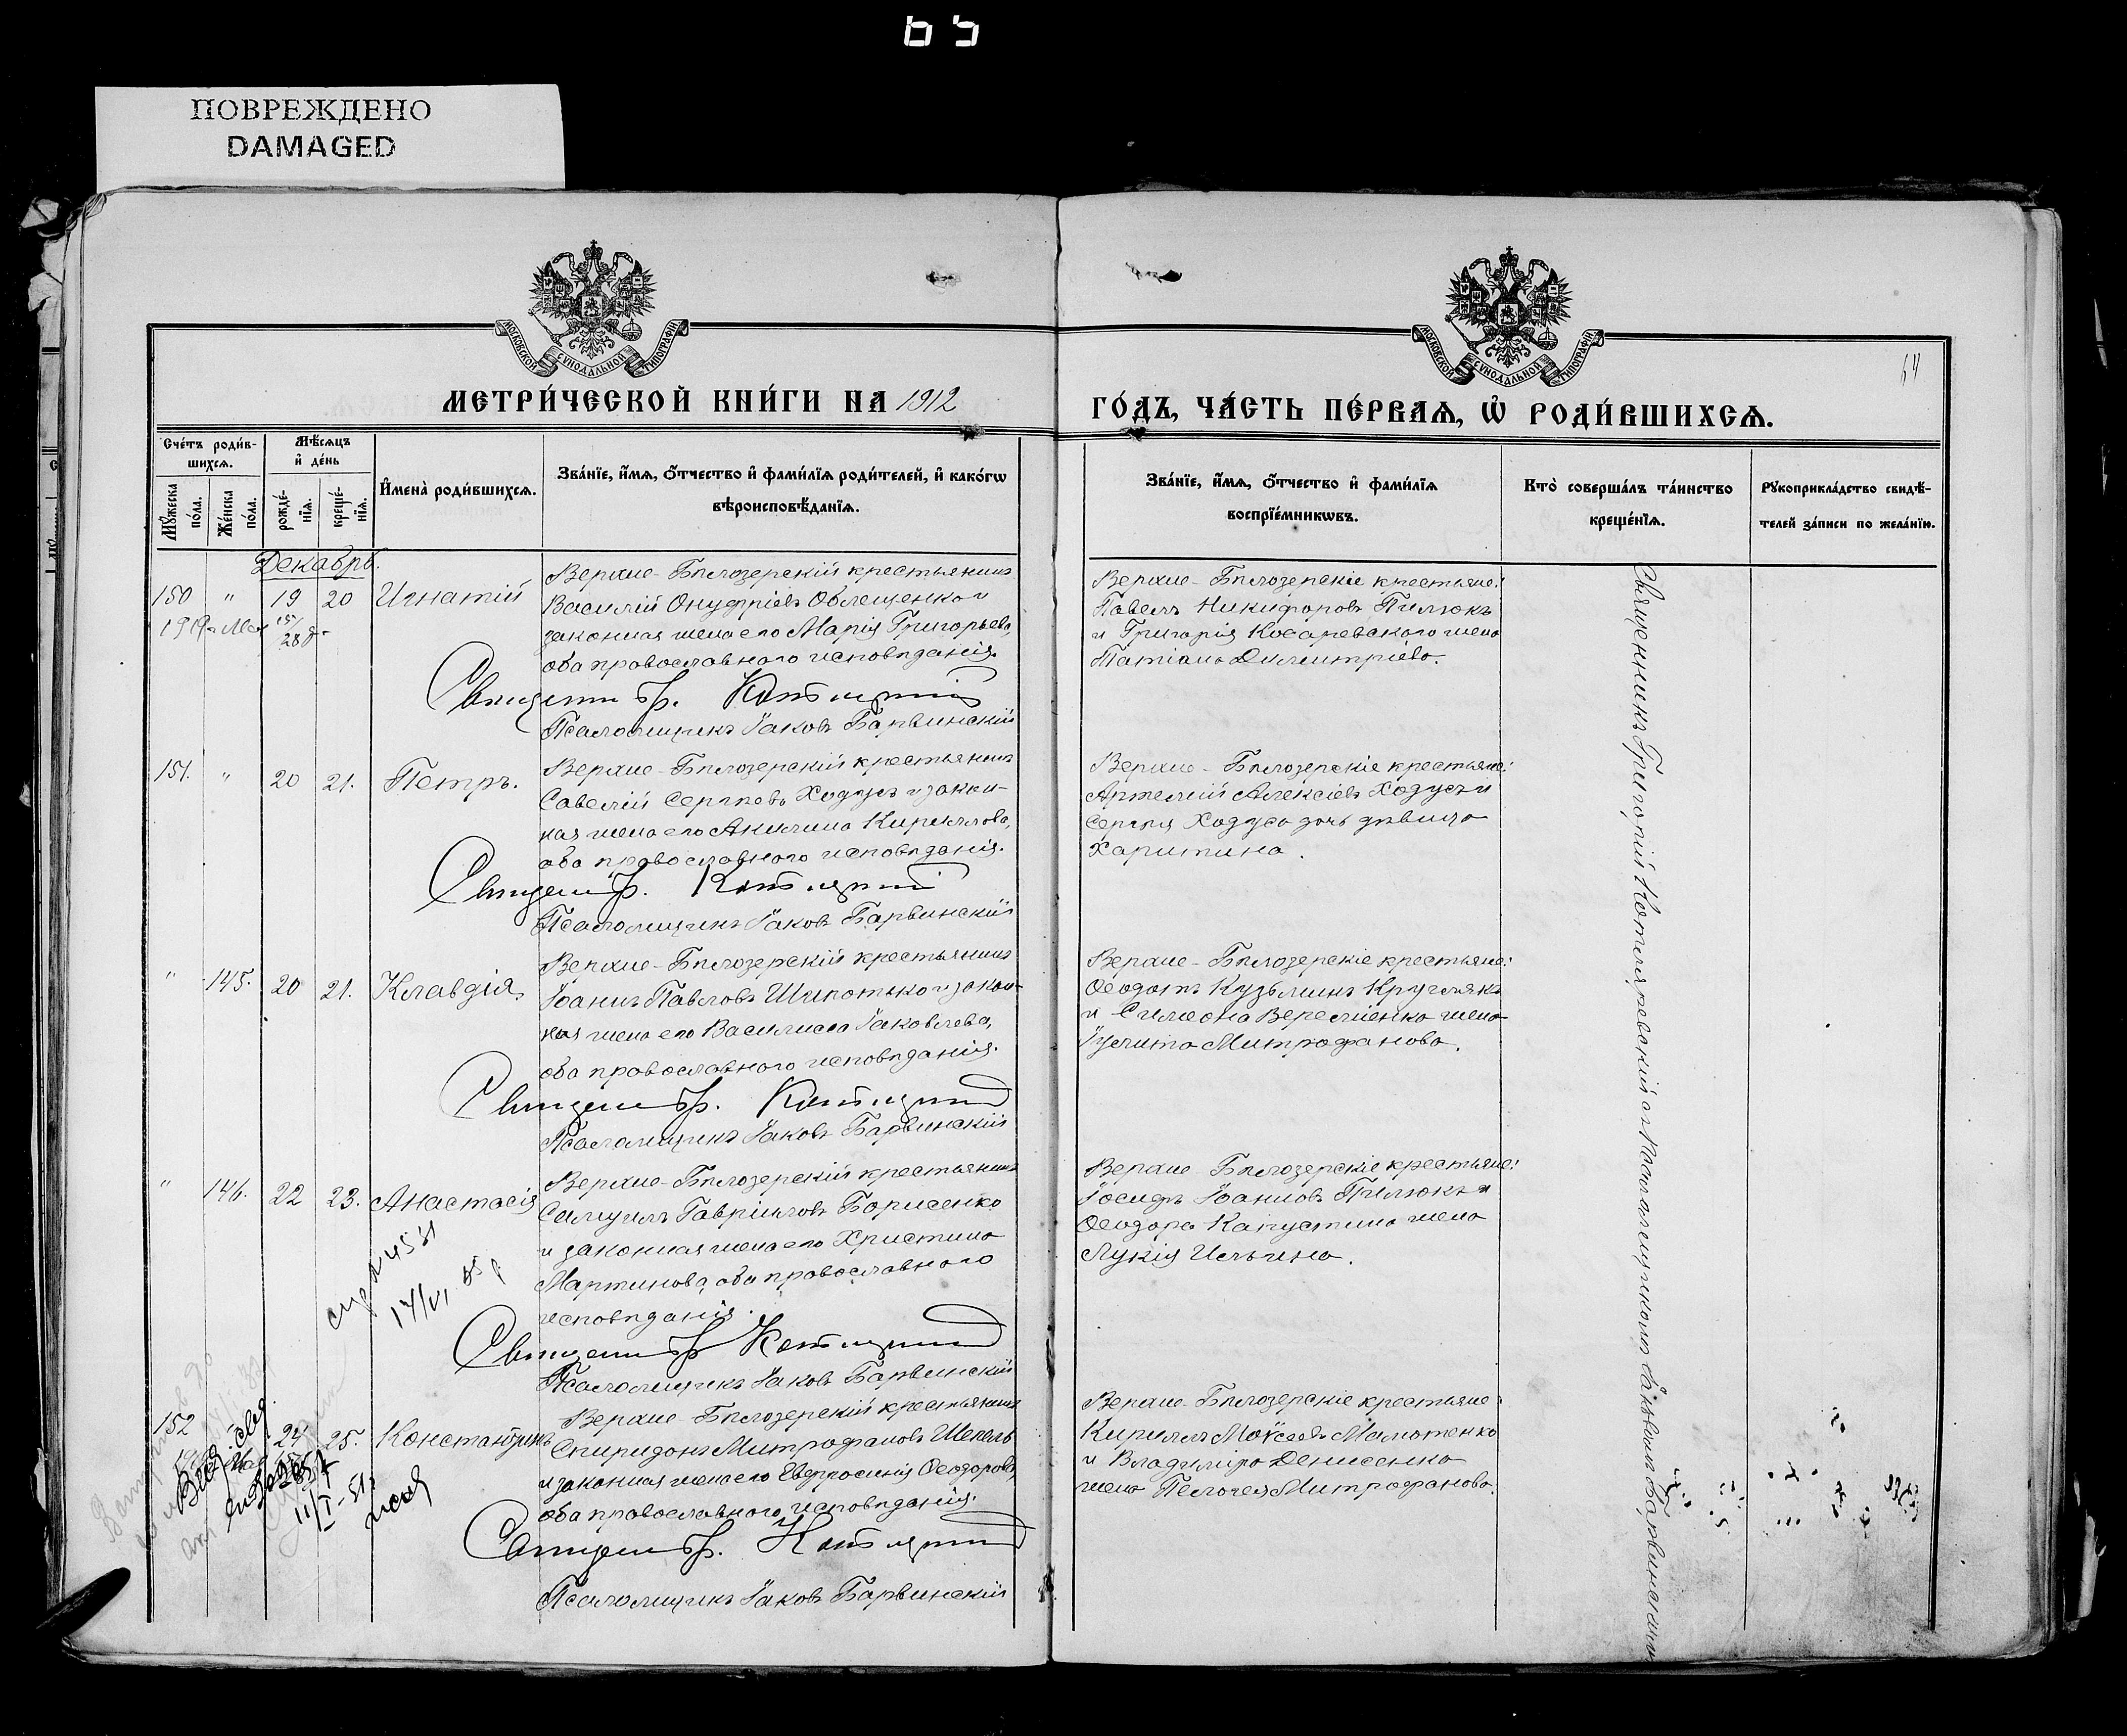 65
ПОВРЕЖДЕНО
DAMAGED
МОСКОВСКОЙ СУНОДАЛЬНОЙ ТИПОГРАФІИ
МОСКОВСКОЙ СУНОДАЛЬНОЙ ТИПОГРАФІИ
64
МЕТРИ́ЧЕСКОЙ КНИ́ГИ НА 1912
ГО́ДЪ, ЧА́СТЬ ПЕ́РВАѦ, Ѡ҆ РОДИ́ВШИХСѦ.
Сче́тъ роди́в-
шихсѧ.
Мꙋ́жеска по́ла.
Же́нска по́ла.
Мѣ́сѧцъ
и҆ де́нь
рожде́-
нїѧ.
креще́-
нїѧ.
И҆мена̀ роди́вшихсѧ.
Зва́нїе, и҆́мѧ, ѻ҆́тчество и҆ фами́лїѧ роди́телей, и҆ како́гѡ
вѣроисповѣ́данїѧ.
Зва́нїе, и҆́мѧ, ѻ҆́тчество и҆ фами́лїѧ
воспрїе́мникѡвъ.
Кто̀ соверша́лъ та́инство
креще́нїѧ.
Рꙋкоприкла́дство свидѣ́-
телей за́писи по жела́нїю.
Декабрь.
150 " 19 20 Игнатій
Верхне-Бѣлозерскій крестьянинъ
Василій Онуфріевъ Облещенко и
законная жена его Марія Григорьева,
оба православнаго исповѣданія.
Священн. Гр.
Псаломщикъ Іаковъ Барвинскій
Верхне-Бѣлозерскіе крестьяне:
Павелъ Никифоровъ Пилюкъ
и Григорія Косаревскаго жена
Татіана Димитріева.
151. " 20 21. Петръ.
Верхне-Бѣлозерскій крестьянинъ
Савелій Сергіевъ Ходусъ и закон-
ная жена его Акилина Кириллова,
оба православнаго исповѣданія.
Священ. Гр.
Псаломщикъ Іаковъ Барвинскій
Верхне-Бѣлозерскіе крестьяне:
Артемій Алексіевъ Ходусъ и
Сергія Ходуса дочь дѣвица
Харитина.
" 145. 20 21. Клавдія.
Верхне-Бѣлозерскій крестьянинъ
Іоаннъ Павловъ Шипотько и закон-
ная жена его Василисса Іаковлева,
оба православнаго исповѣданія.
Священ. Гр.
Псаломщикъ Іаковъ Барвинскій
Верхне-Бѣлозерскіе крестьяне:
Ѳеодотъ Кузьминъ Круглякъ
и Симеона жена
Іулита Митрофанова.
" 146. 22 23. Анастасія
Верхне-Бѣлозерскій крестьянинъ
Самуилъ Гавріиловъ Борисенко
и законная жена его Христина
Мартинова, оба православнаго
исповѣданія.
Священ. Гр.
Псаломщикъ Іаковъ Барвинскій
Верхне-Бѣлозерскіе крестьяне:
Іосифъ Іоанновъ Пилюкъ и
Ѳеодора Капустина жена
Лукія Ильина.
152 24 25. Константинъ
Верхне-Бѣлозерскій крестьянинъ
Спиридонъ Митрофановъ Шепель
и законная жена его Евфросинія Ѳеодорова,
оба православнаго исповѣданія.
Священ. Гр.
Псаломщикъ Іаковъ Барвинскій
Верхне-Бѣлозерскіе крестьяне:
Кириллъ Мамотенко
и Владиміра Денисенко
жена Пелагея Митрофанова.
Священникъ Григорій съ псаломщикомъ Іаковомъ Барвинскимъ